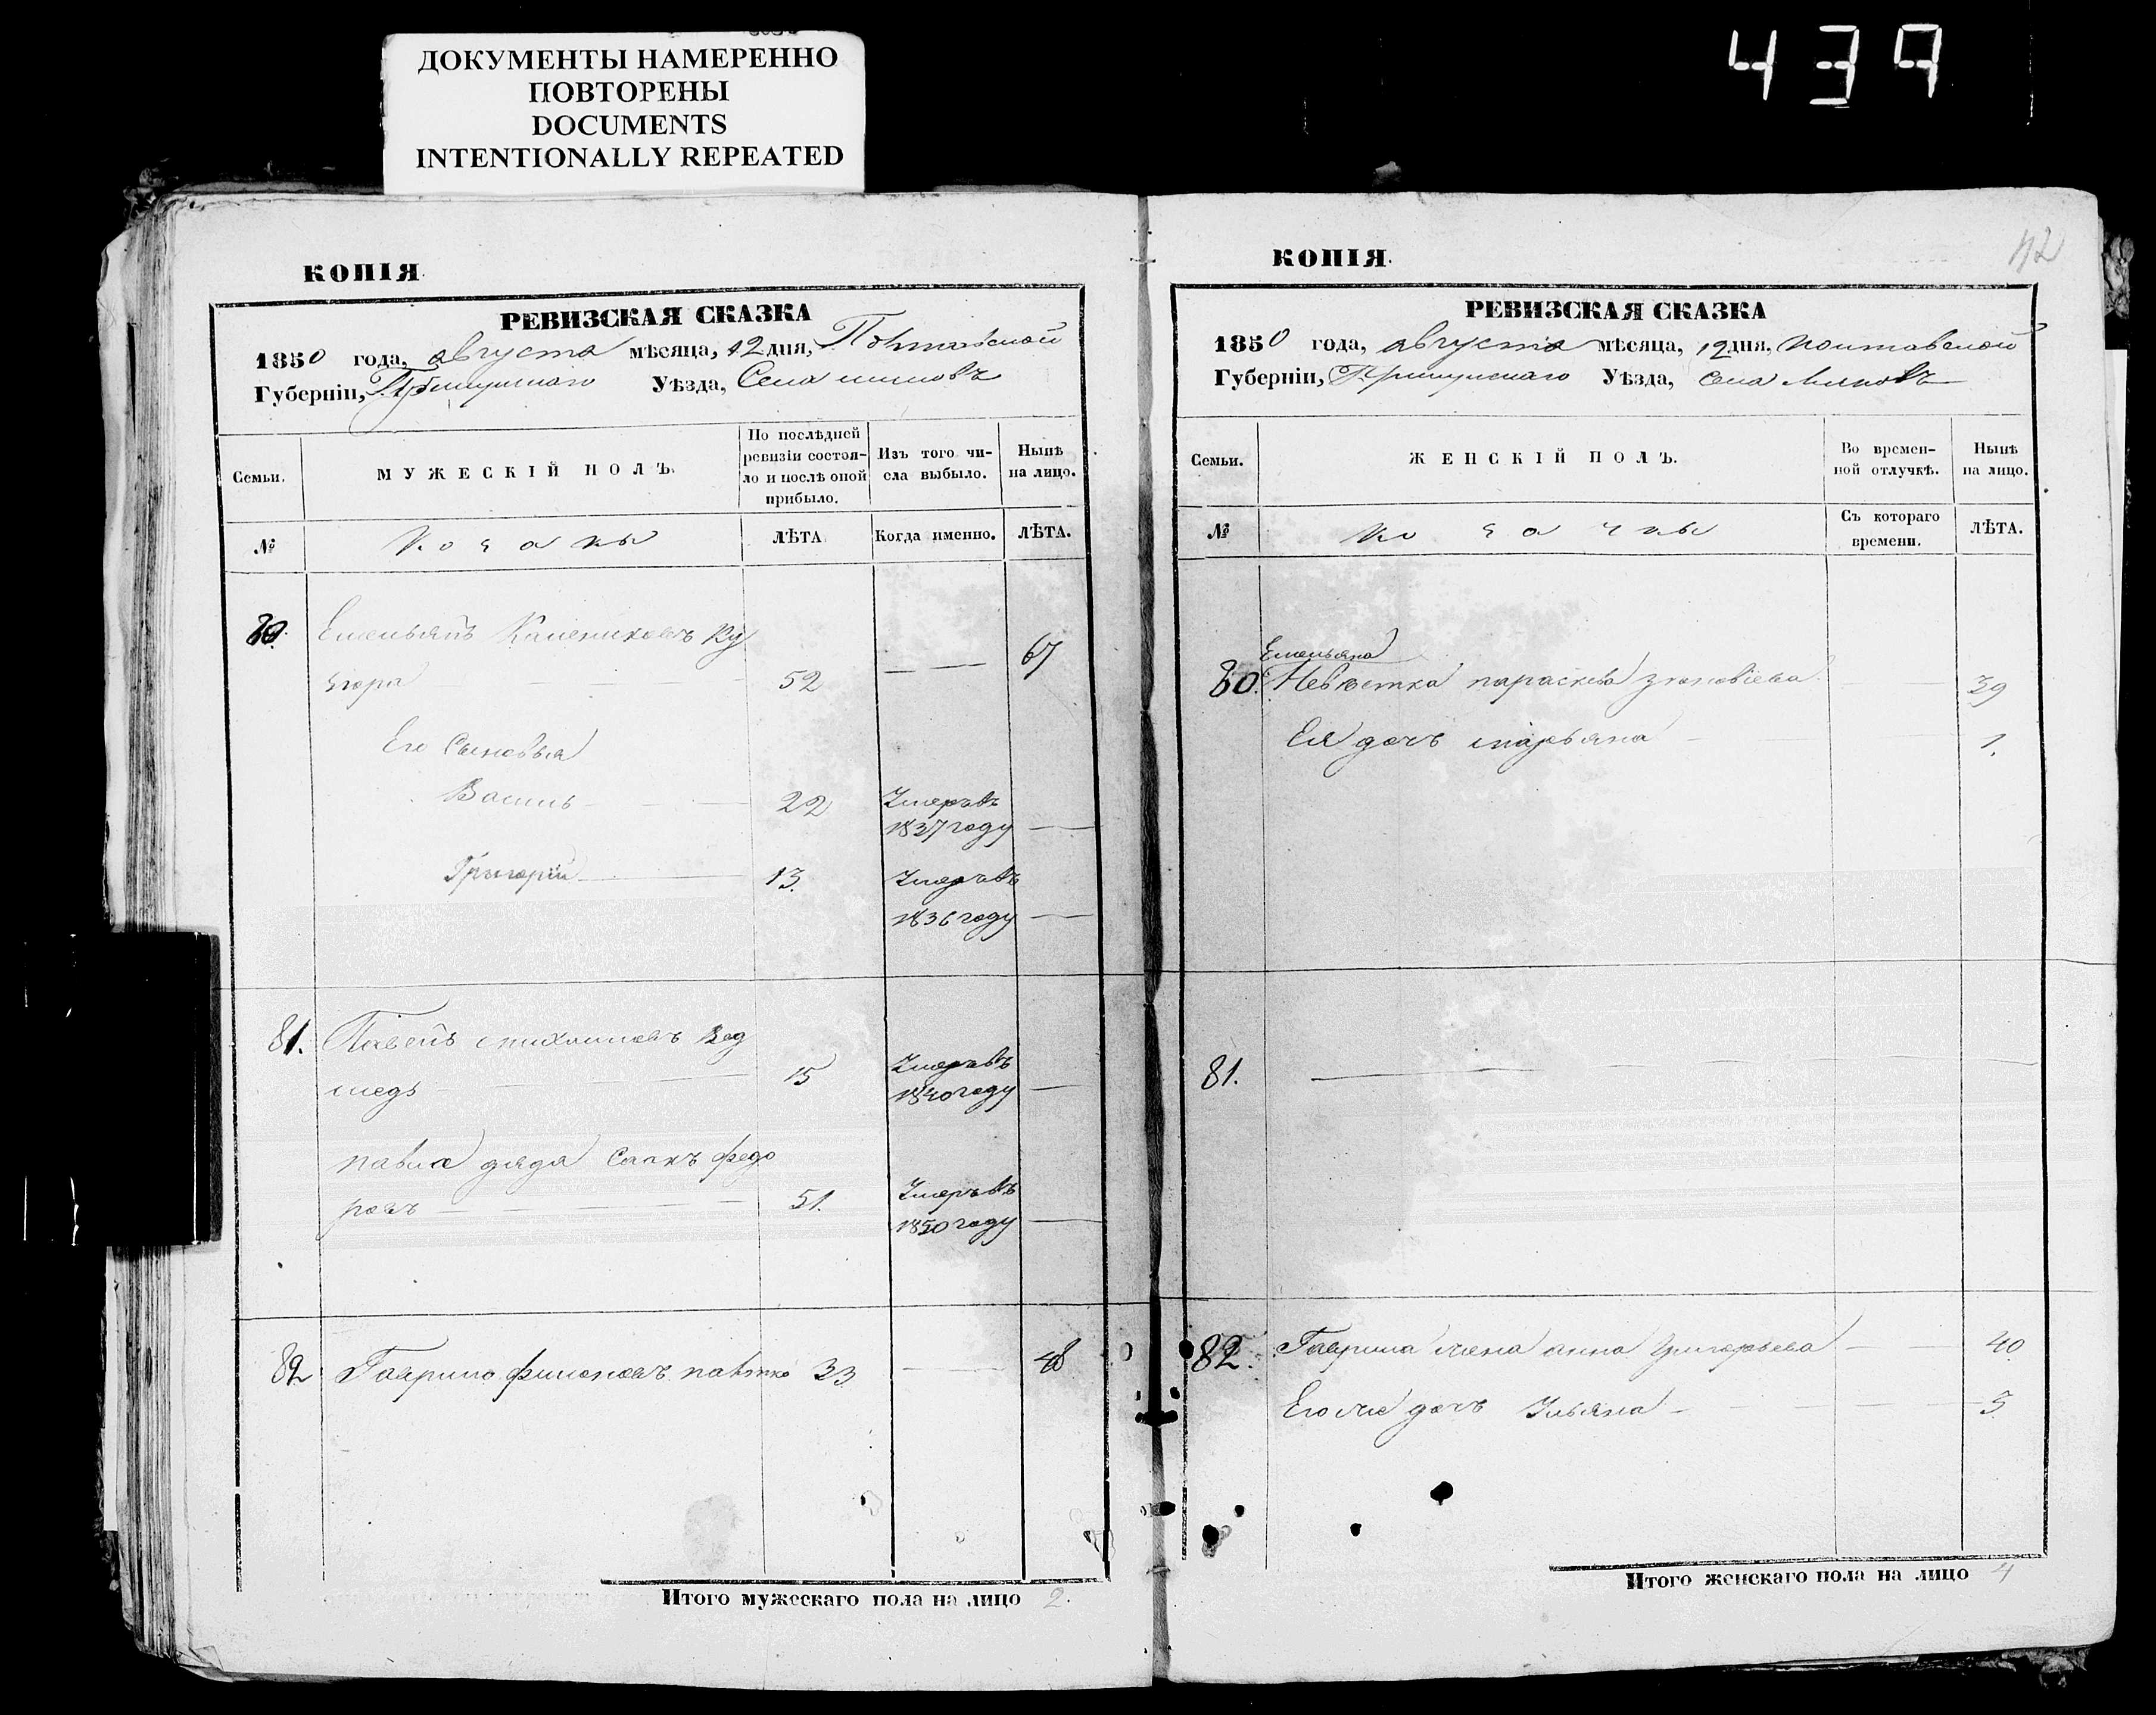 439
ДОКУМЕНТЫ НАМЕРЕННО
ПОВТОРЕНЫ
DOCUMENTS
INTENTIONALLY REPEATED
КОПІЯ.
РЕВИЗСКАЯ СКАЗКА
1850 года, августа мѣсяца, 12 дня, Полтавской
Губерніи, Прилуцкаго Уѣзда, Села
Семьи.
МУЖЕСКІЙ ПОЛЪ.
По послѣдней
ревизіи состоя-
ло и послѣ оной
прибыло.
Изъ того чи-
сла выбыло.
Нынѣ
на лицо.
№
Козаки
ЛѢТА
Когда именно.
ЛѢТА.
80. Емельянъ Калениковъ Ку
52 — — 67
Его Сыновья
Василь 22 Умеръ въ
1837 году —
Григорій 13. Умеръ въ
1836 году —
81. Павелъ Михайловъ Вед
медь 15 Умеръ въ
1840 году —
Павла дядя федо
ровъ 51. Умеръ въ
1850 году —
82 Гаврило 33 — 48
Итого мужескаго пола на лицо 2.
КОПІЯ.
42
РЕВИЗСКАЯ СКАЗКА
1850 года, августа мѣсяца, 12 дня, Полтавской
Губерніи, Прилуцкаго Уѣзда, Села
Семьи.
ЖЕНСКІЙ ПОЛЪ.
Во времен-
ной отлучкѣ.
Нынѣ
на лицо.
№
Козачки
Съ котораго
времени.
ЛѢТА.
Емельяна
80. Невѣстка параскева зѣновіева 39
Ея дочь марьяна 1.
81. —
82. Гаврила жена анна Григорьева — 40.
Его же дочь Ульяна — 3
Итого женскаго пола на лицо 4